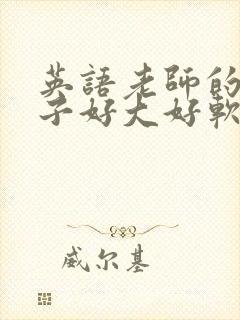 英語老師的
子好大好軟
威尔基